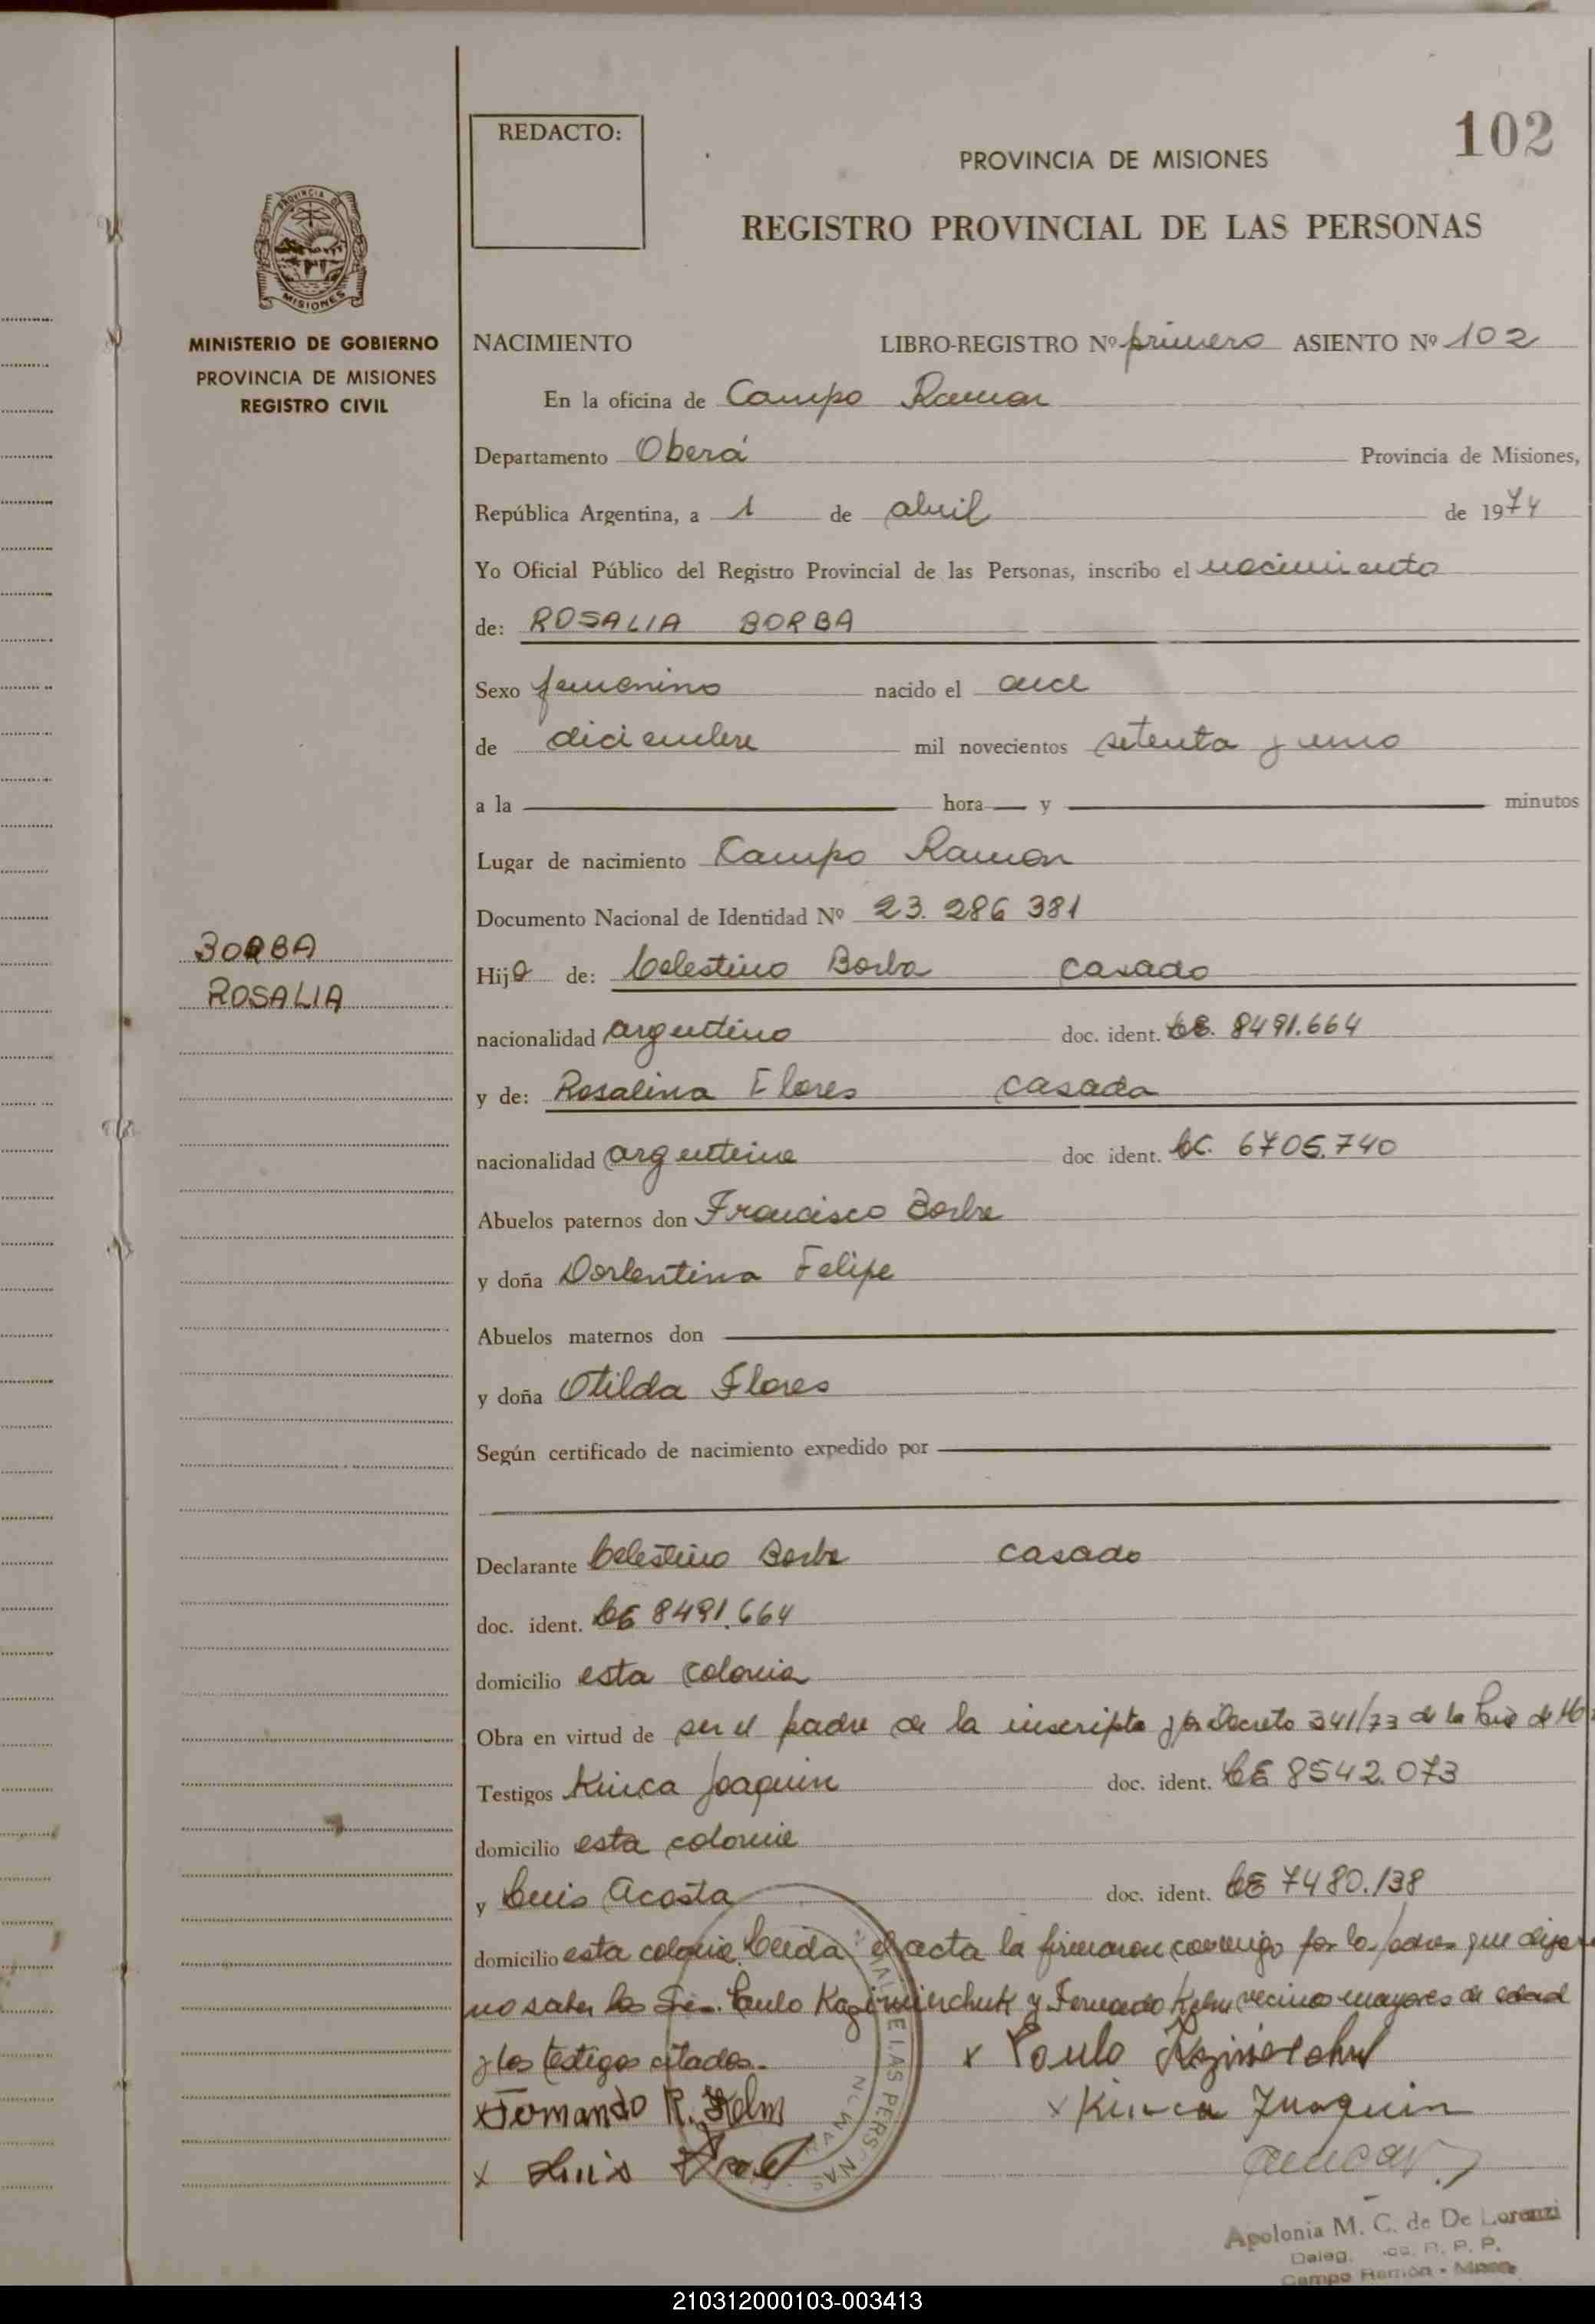 102
REDACTO:
PROVINCIA DE MISIONES
REGISTRO PROVINCIAL DE LAS PERSONAS
MINISTERIO DE GOBIERNO
PROVINCIA DE MISIONES
REGISTRO CIVIL
NACIMIENTO LIBRO-REGISTRO Nº primero ASIENTO Nº 102
En la oficina de Campo Ramon
Departamento Oberá Provincia de Misiones,
República Argentina, a 1 de abril de 1974
Yo Oficial Público del Registro Provincial de las Personas, inscribo el nacimiento
de: ROSALIA BORBA
Sexo femenino nacido el once
de diciembre mil novecientos setenta y uno
a la hora y minutos
Lugar de nacimiento Campo Ramon
Documento Nacional de Identidad Nº 23.286 381
BORBA
ROSALIA
Hija de: Celestino Borba casado
nacionalidad argentino doc. ident. 8491.664
y de: Rosalina Flores casada
nacionalidad argentina doc ident. LC. 6705.740
Abuelos paternos don Francisco Borba
y doña Dorlentina Felipe
Abuelos maternos don
y doña Otilda Flores
Según certificado de nacimiento expedido por
Declarante Celestino Borba casado
doc. ident. LE 8491.664
domicilio esta colonia
Obra en virtud de ser el padre de la inscripta y por Decreto 341/73 de la
Testigos Kinca Joaquin doc. ident. LE 8542.073
domicilio esta colonia
y Luis Acosta doc. ident. LE 7480.138
domicilio esta colonia. Leida el acta la firmaron conmigo por los padres que dijeron
no saber los Sres. Paulo y Fernando Kelm vecinos mayores de edad
y los testigos citados.-
x Paulo
x Fernando R. Kelm
x Kinca Juaquin
x Luis
Apolonia M. C. de De Lorenzi
Deleg. R. P. P.
Campo Ramón - Mnes.
210312000103-003413